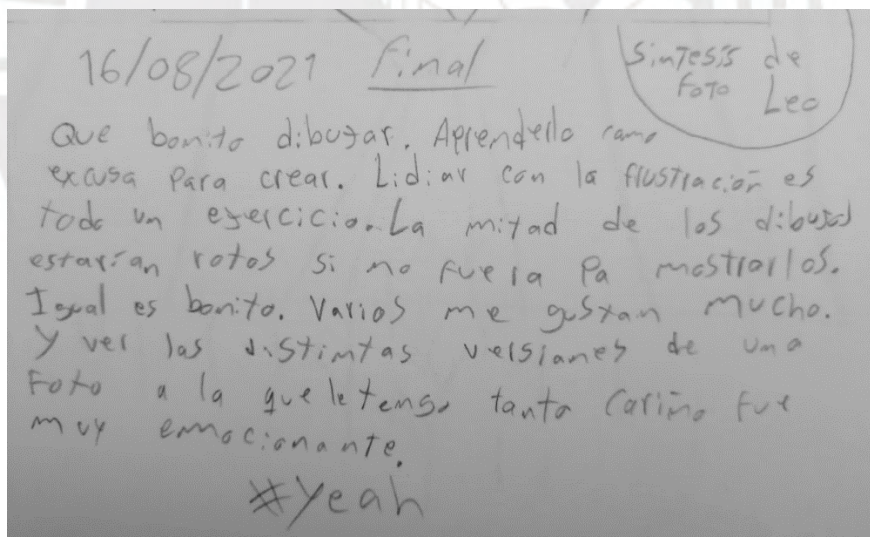 16/08/2021 final
Sintesis de
Foto Leo
Que bonito dibujar. Aprenderlo como
excusa para crear. Lidiar con la frustración es
todo un ejercicio. La mitad de los dibujos
estarían rotos si no fuera pa mostrarlos.
Igual es bonito. Varios me gustan mucho.
Y ver las distintas versiones de una
Foto a la que le tengo tanto cariño fue
muy emocionante.
#Yeah